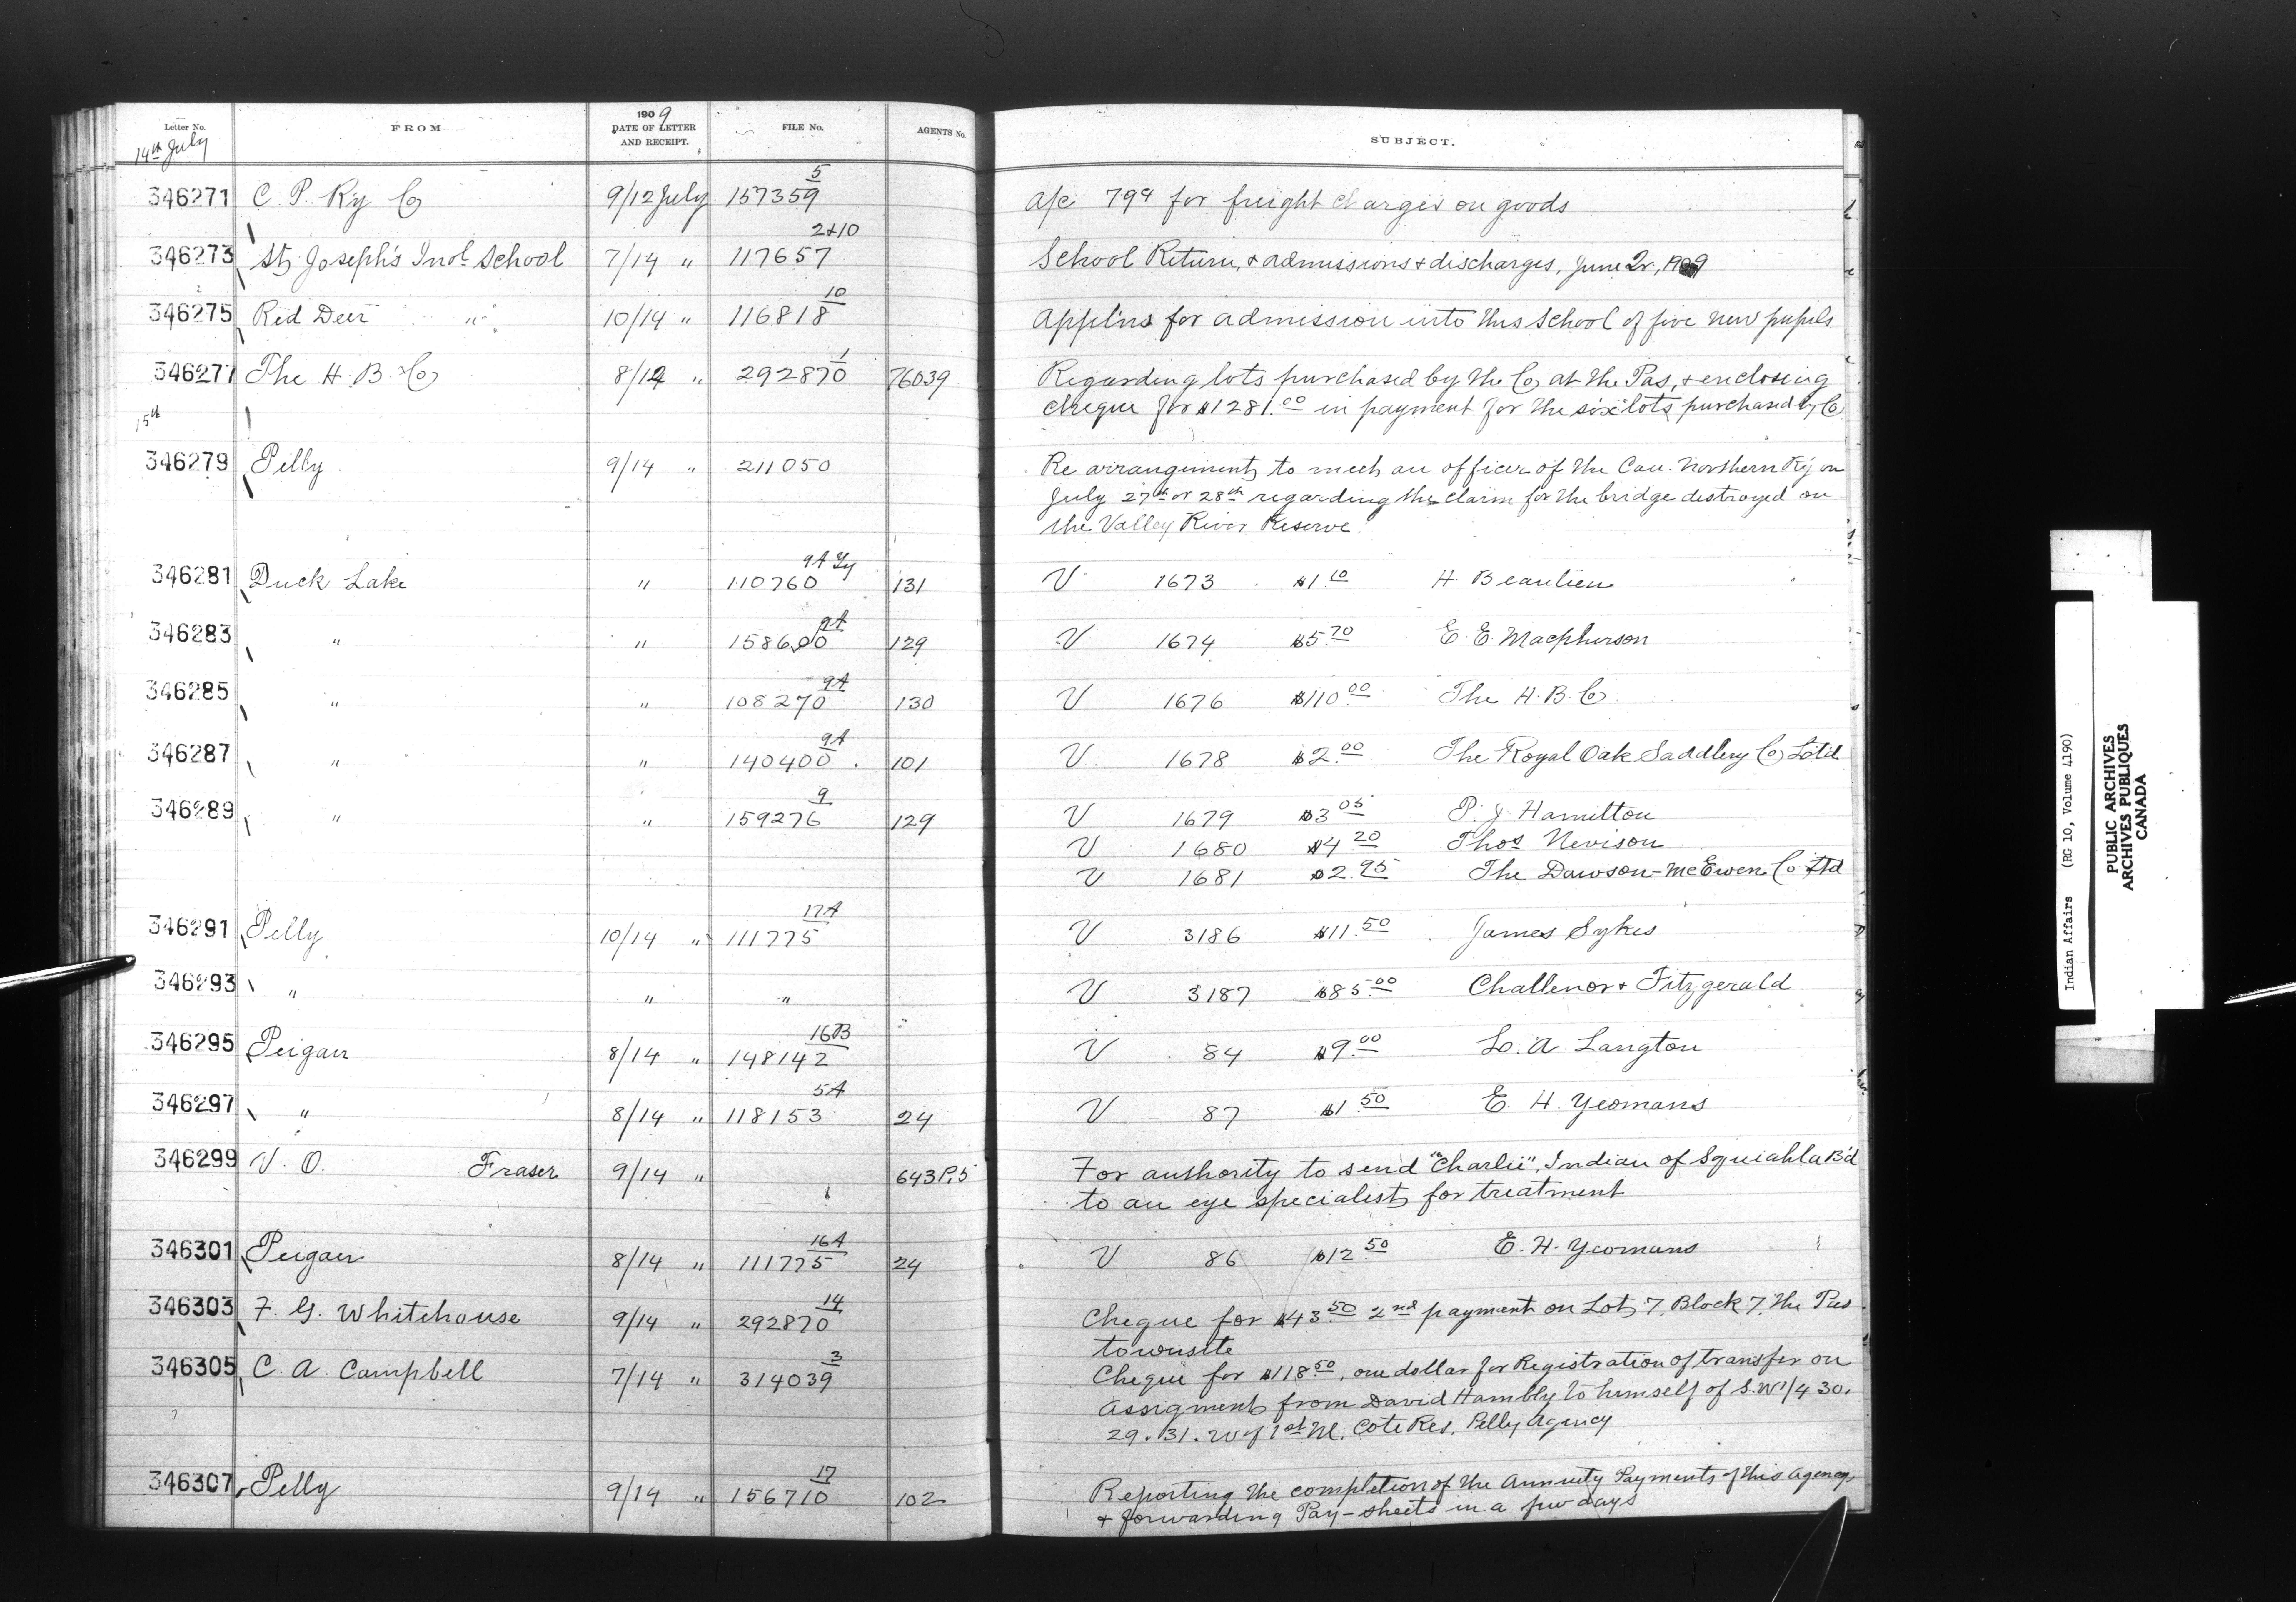 Letter No. FROM 1909 DATE OF LETTER AND RECEIPT. FILE No. AGENTS No. SUBJECT.
14th July
346271 C. P. Ry Co 9/12 July 157359 5 a/c 799 for freight charges on goods
346273 St. Joseph's Indl School 7/14 " 117657 2+10 School Return, & admissions & discharges, June Qr, 1909
346275 Red Deer " 10/14 " 116818 10 Applns for admission into this School of five new pupils
346277 The H. B. Co 8/12 " 292870 1 76039 Regarding lots purchased by the Co at the Pas, & enclosing
cheque for $1281.00 in payment for the six lots purchased by Co
15th
346279 Pelly 9/14 " 211050 Re arrangements to meet an officer of the Can. Northern Ry on
July 27th or 28th regarding the claim for the bridge destroyed on
the Valley River Reserve
346281 Duck Lake " 110760 9A 131 V 1673 $1.10 H. Beaulieu
346283 " " 158600 9A 129 V 1674 $5.70 E. E. Macpherson
346285 " " 108270 9A 130 V 1676 $110.00 The H. B. Co.
346287 " " 140400 9A 101 V 1678 $2.00 The Royal Oak Saddlery Co Ltd
346289 " " 159276 9 129 V 1679 $3.05 P. J. Hamilton
V 1680 $4.20 Thos Nevison
V 1681 $2.95 The Dawson-McEwen Co Ltd
346291 Pelly 10/14 " 111775 17A V 3186 $11.50 James Sykes
346293 " " " V 3187 $85.00 Challenor & Fitzgerald
346295 Peigan 8/14 " 148142 16B V 84 $9.00 L. A. Langton
346297 " 8/14 " 118153 5A 24 V 87 $1.50 E. H. Yeomans
346299 V. O. Fraser 9/14 " 643P.5 For authority to send "Charlie", Indian of Squiahla B'd
to an eye specialist for treatment
346301 Peigan 8/14 " 111775 16A 24 V 86 $12.50 E. H. Yeomans
346303 F. G. Whitehouse 9/14 " 292870 14 Cheque for $43.50 2nd payment on Lot 7, Block 7, The Pas
townsite
346305 C. A. Campbell 7/14 " 314039 3 Cheque for $118.50, one dollar for Registration of transfer on
assigment from David Hambly to himself of S.W1/4 30.
29. 31. W of 1st M. Cote Res. Pelly Agency
346307 Pelly 9/14 " 156710 17 102 Reporting the completion of the Annuity Payments of this agency,
& forwarding Pay-sheets in a few days
Indian Affairs (RG 10, Volume 4190)
PUBLIC ARCHIVES
ARCHIVES PUBLIQUES
CANADA